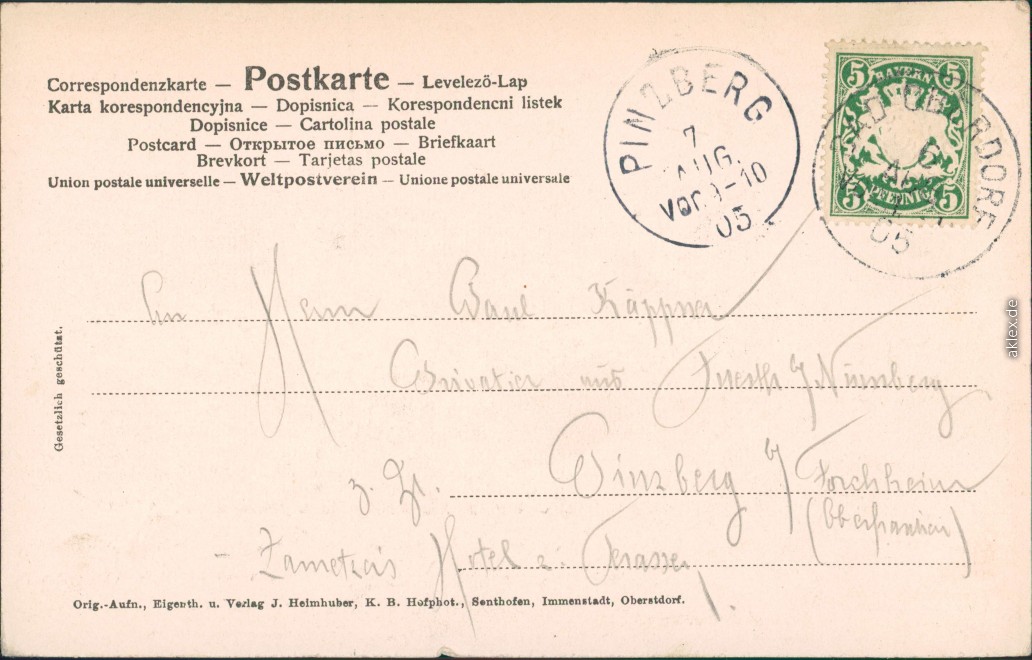 Correspondenzkarte — Postkarte — Levelező-Lap
Karta korespondencyjna — Dopisnica — Korespondencni listek
Dopisnice — Cartolina postale
Postcard — Открытое письмо — Briefkaart
Brevkort — Tarjetas postale
Union postale universelle — Weltpostverein — Unione postale universale
PINZBERG
7
AUG.
VOR. 9-10
05
5 BAYERN 5
5 PFENNIG 5
6
05
Herrn Paul Käppner
Privatier aus Fürth b/Nürnberg
Pinzberg b/ Forchheim
z. Zt. (Oberfranken)
Hotel z. Terasse,
Gesetzlich geschützt.
Orig.-Aufn., Eigenth. u. Verlag J. Heimhuber, K. B. Hofphot., Sonthofen, Immenstadt, Oberstdorf.
aklex.de